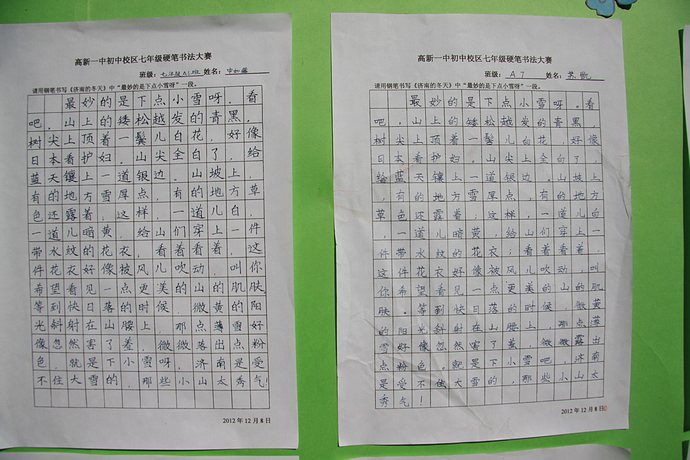 高新一中初中校区七年级硬笔书法大赛
班级：七年级A1班 姓名：
请用钢笔书写《济南的冬天》中“最妙的是下点小雪呀”一段。
最妙的是下点小雪呀。看
吧，山上的矮松越发的青黑，
树尖上顶着一髻儿白花，好像
日本看护妇。山尖全白了，给
蓝天镶上一道银边。山坡上，
有的地方雪厚点，有的地方草
色还露着，这样，一道儿白，
一道儿暗黄，给山们穿上一件
带水纹的花衣，看着看着，这
件花衣好像被风儿吹动，叫你
希望看见一点更美的山的肌肤
等到快日落的时候，微黄的阳
光斜射在山腰上，那点薄雪好
像忽然害了羞，微微落出点粉
色，就是下小雪呀，济南是受
不住大雪的，那些小山太秀气！
2012年12月8日
高新一中初中校区七年级硬笔书法大赛
班级：A7 姓名：
请用钢笔书写《济南的冬天》中“最妙的是下点小雪呀”一段。
最妙的是下点小雪呀。看
吧，山上的矮松越发的青黑，
树尖上顶着一髻儿白花，好像
日本看护妇。山尖全白了，
给蓝天镶上一道银边。山坡上
，有的地方雪厚点，有的地方
草色还露着，这样，一道儿白
，一道儿暗黄，给山们穿上一
件带水纹的花衣；看着看着，
这件花衣好像被风儿吹动，叫
你希望看见一点更美的山的肌
肤。等到快日落的时候，微黄
的阳光斜射在山腰上，那点薄
雪好像忽然害了羞，微微露出
点粉色。就是下小雪吧，济南
是受不住大雪的，那些小山太
秀气！
2012年12月8日